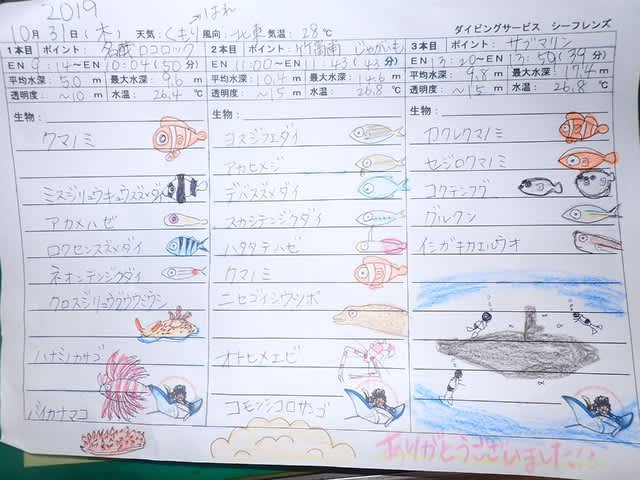 2019
はれ
10月31日(木) 天気:くもり 風向:北東 気温:28℃ ダイビングサービス シーフレンズ
1本目 ポイント: 名蔵ロコロック
EN 9:14～EN 10:04(50分)
平均水深: 5.0 m 最大水深: 9.6 m
透明度: ～10 m 水温: 26.4 ℃
生物:
クマノミ
ミスジリュウキュウスズメダイ
アカメハゼ
ロクセンスズメダイ
ネオンテンジクダイ
クロスジリュウグウウミウシ
ハナミノカサゴ
バイカナマコ
2本目 ポイント: 竹富南 じゃがいも
EN 11:00～EN 11:43(43分)
平均水深: 10.4 m 最大水深: 14.6 m
透明度: ～15 m 水温: 26.8 ℃
生物:
ヨスジフエダイ
アカヒメジ
デバスズメダイ
スカシテンジクダイ
ハタタテハゼ
クマノミ
ニセゴイシウツボ
オトヒメエビ
コモンシコロサンゴ
3本目 ポイント: サブマリン
EN 13:20～EN 13:50(39分)
平均水深: 9.8 m 最大水深: 17.4 m
透明度: ～15 m 水温: 26.8 ℃
生物:
カクレクマノミ
セジロクマノミ
コクテンフグ
グルクン
イシガキカエルウオ
ありがとうございました